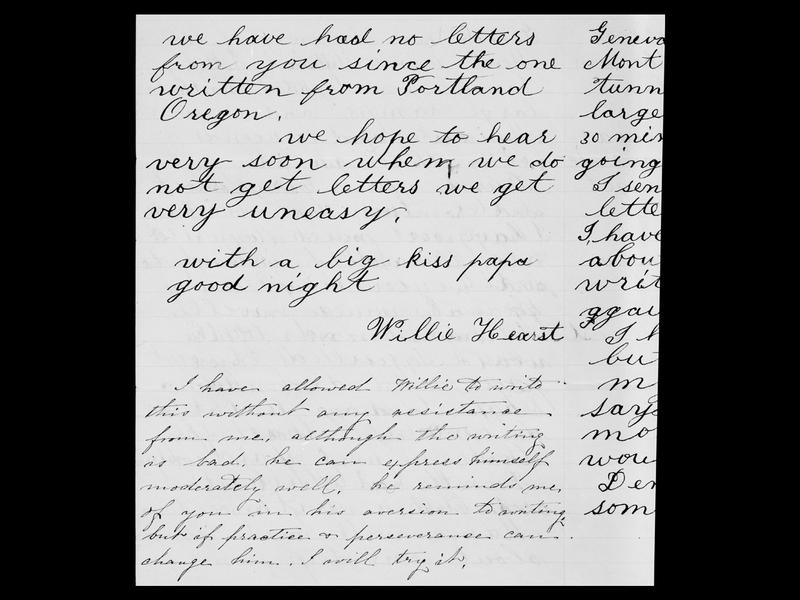 we have had no letters
from you since the one
written from Portland
Oregon.
we hope to hear
very soon when we do
not get letters we get
very uneasy.
with a big kiss papa
good night
Willie Hearst
I have allowed Willie to write
this without any assistance
from me, although the writing
is bad. he can express himself
moderately well. he reminds me,
of you in his aversion to writing
but if practice & perseverance can
change him. I will try it.
Geneva
Mont
tunn
large
30 min
going
I sen
lette
I have
abou
writ
agai
I h
but
m
says
mo
wou
Den
som